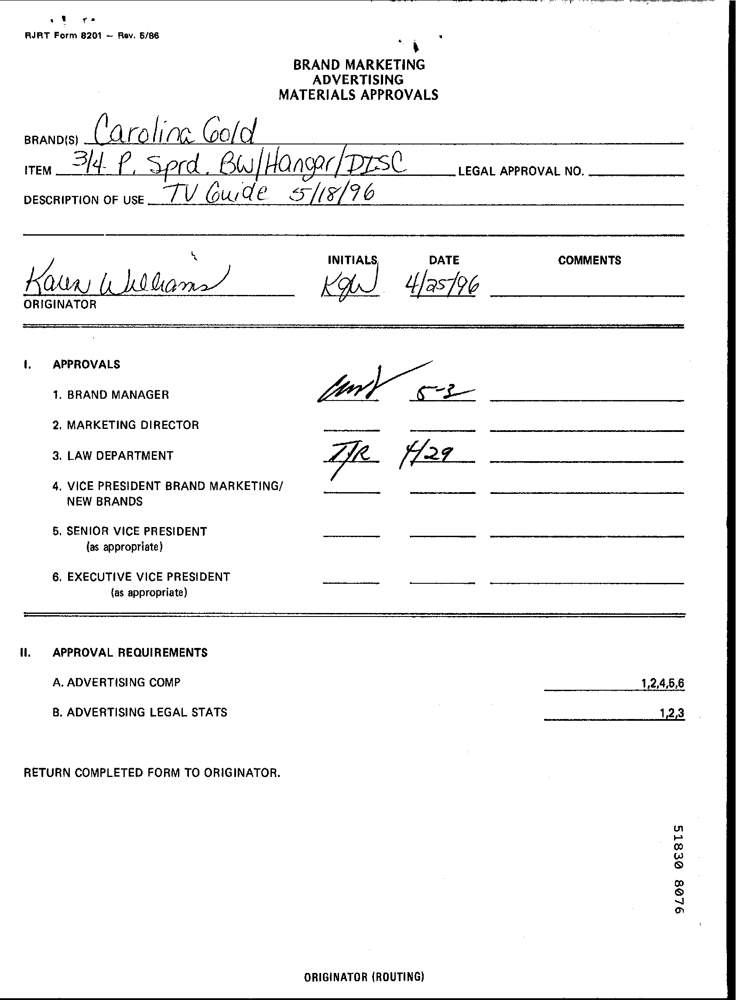 RJRT Form 8201 – Rev. 5/86
BRAND MARKETING
ADVERTISING
MATERIALS APPROVALS
BRAND(S) Carolina Gold
ITEM 3/4 P. Sprd. BW/Hangar/DISC LEGAL APPROVAL NO.
DESCRIPTION OF USE TV Guide 5/18/96
INITIALS DATE COMMENTS
Karen Williams KGW 4/25/96
ORIGINATOR
I. APPROVALS
1. BRAND MANAGER 5-3
2. MARKETING DIRECTOR
3. LAW DEPARTMENT TJR 4/29
4. VICE PRESIDENT BRAND MARKETING/
NEW BRANDS
5. SENIOR VICE PRESIDENT
(as appropriate)
6. EXECUTIVE VICE PRESIDENT
(as appropriate)
II. APPROVAL REQUIREMENTS
A. ADVERTISING COMP 1,2,4,5,6
B. ADVERTISING LEGAL STATS 1,2,3
RETURN COMPLETED FORM TO ORIGINATOR.
51830 8076
ORIGINATOR (ROUTING)